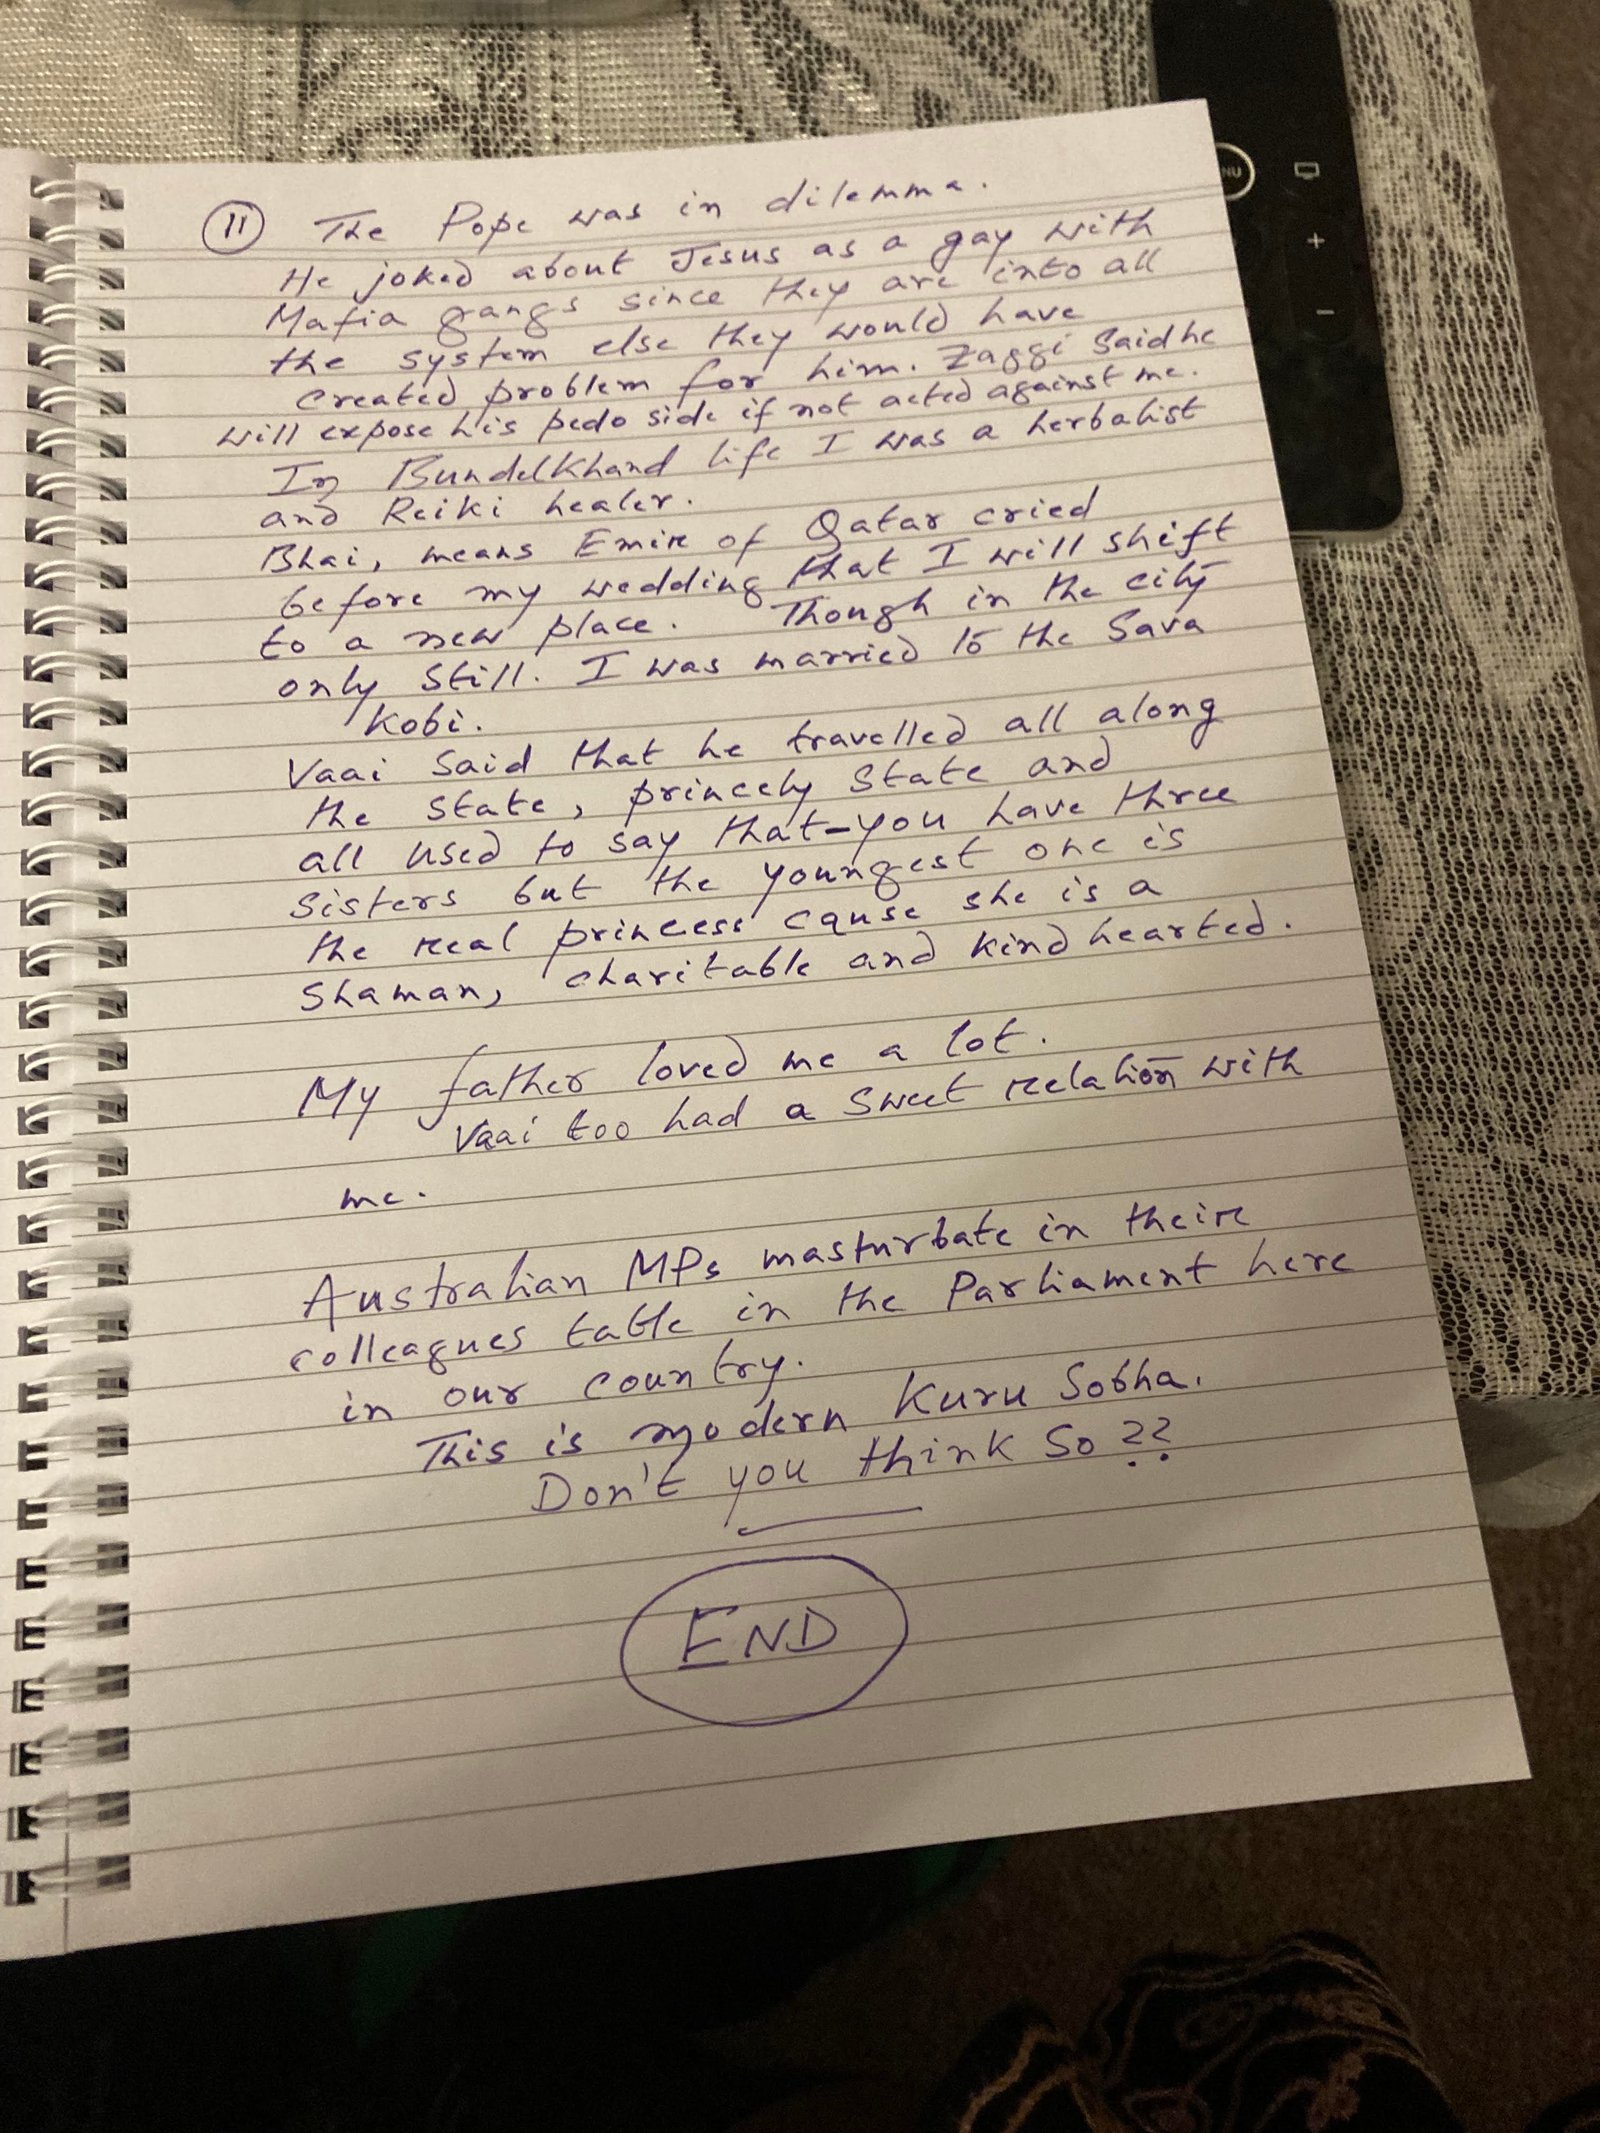 11 The Pope was in dilemma.
He joked about Jesus as a gay with
Mafia gangs since they are into all
the system else they would have
created problem for him. Zaggi Said he
will expose his pedo side if not acted against me.
In BundelKhand life I was a herbalist
and Reiki healer.
Bhai, means Emire of Qatar cried
before my wedding that I will shift
to a new place. Though in the city
only still. I was married to the Sava
Kobi.
Vaai said that he travelled all along
the state, princely State and
all used to say that-you have three
Sisters but the youngest one is
the real princess cause she is a
Shaman, charitable and kind hearted.
My father loved me a lot.
Vaai too had a sweet relation with
me.
Australian MPs masturbate in their
colleagues table in the Parliament here
in our country.
This is modern Kuru Sobha.
Don't you think so ??
END
NU
+
-